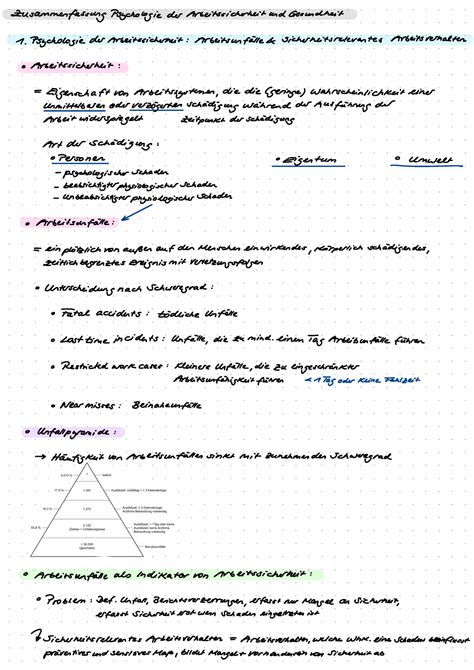 Zusammenfassung Psychologie der Arbeitssicherheit und Gesundheit
1. Psychologie der Arbeitssicherheit: Arbeitsunfälle & Sicherheitsrelevantes Arbeitsverhalten
• Arbeitssicherheit:
= Eigenschaft von Arbeitssystemen, die die (geringe) Wahrscheinlichkeit einer
unmittelbaren oder verzögerten Schädigung während der Ausführung der
Arbeit widerspiegelt Zeitpunkt der Schädigung
Art der Schädigung:
• Personen • Eigentum • Umwelt
– psychologischer Schaden
– beabsichtigter physiologischer Schaden
– unbeabsichtigter physiologischer Schaden
• Arbeitsunfälle:
= ein plötzlich von außen auf den Menschen einwirkendes, körperlich schädigendes,
zeitlich begrenztes Ereignis mit Verletzungsfolgen
• Unterscheidung nach Schweregrad:
• Fatal accidents: tödliche Unfälle
• Lost time incidents: Unfälle, die zu mind. einem Tag Arbeitsunfälle führen
• Restricted work cases: kleinere Unfälle, die zu eingeschränkter
Arbeitsunfähigkeit führen < 1 Tag oder keine Fehlzeit
• Near misses: Beinaheunfälle
• Unfallpyramide:
→ Häufigkeit von Arbeitsunfällen sinkt mit zunehmenden Schweregrad
• Arbeitsunfälle als Indikator von Arbeitssicherheit:
• Problem: Def. Unfall, Berichtsverzerrungen, erfasst nur Mangel an Sicherheit,
erfasst Sicherheit erst wenn Schaden eingetreten ist
Sicherheitsrelevantes Arbeitsverhalten = Arbeitsverhalten, welche Whk. eine Schaden beeinflusst
präventives und sensitives Maß, bildet Mangel + vorhandensein von Sicherheit ab